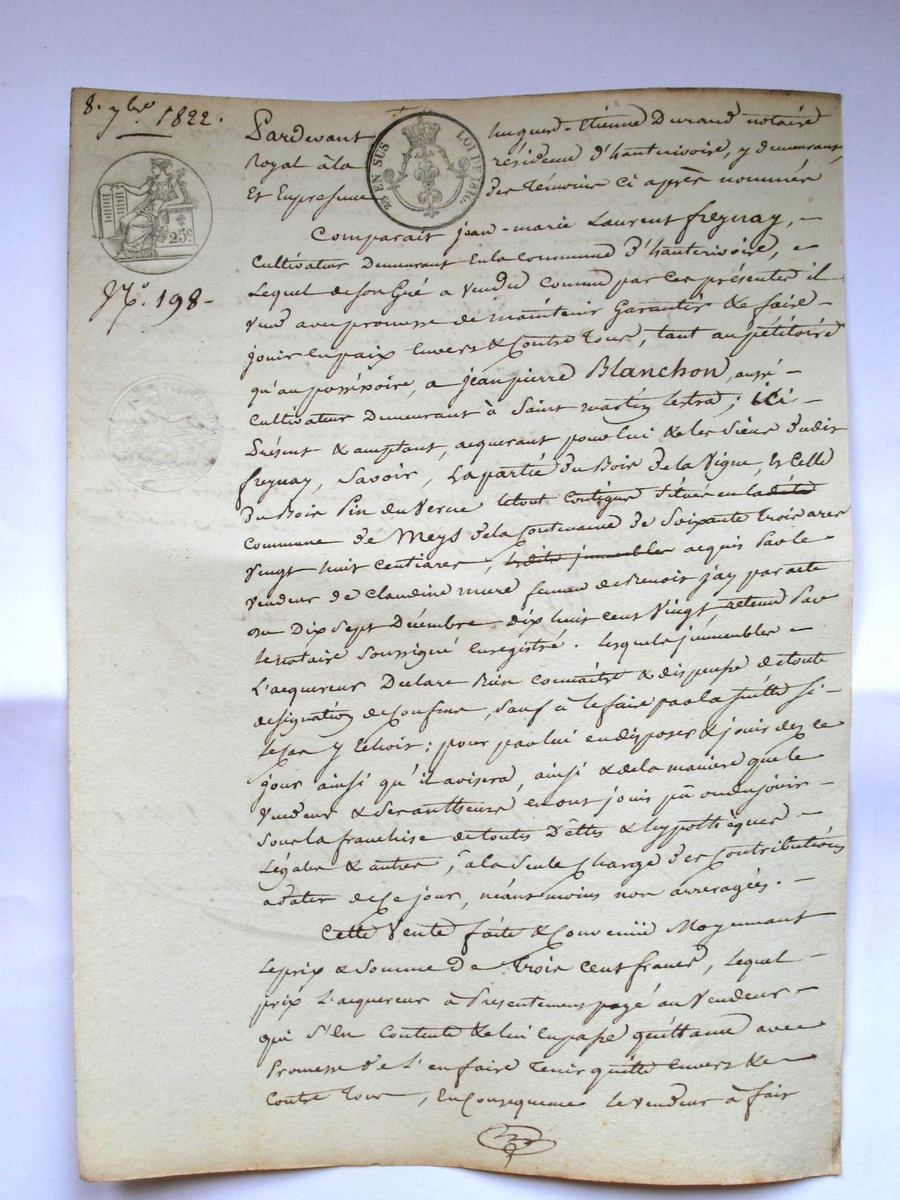 8. 7bre 1822.
Pardevant hugues-Etienne Durand notaire
royal à la résidence d'hauterivoire, y demeurant,
Et En présence des témoins ci après nommés
2e EN SUS LOI DE 1816.
25c
No. 198-
Comparait jean-marie Laurent freynay, -
Cultivateur demeurant En la commune d'hauterivoire,
Lequel de son Gré a Vendu comme par ces présentes il
Vend avec promesse de maintenir Garantir & faire -
jouir En paix Envers & Contre tous, tant au pétitoire
qu'au possessoire, a jean pierre Blanchon, aussi -
Cultivateur demeurant à Saint martin lestra; ici -
Présent & acceptant, acquerant pour lui & les siens dudit
freynay, Savoir, La partie du Bois de la Vigne, & Celle
du Bois Pin du Verne le tout contigus situés en la dite
Commune de Meys de la Contenance de Soixante trois ares
Vingt huit Centiares, lesdits immeubles acquis par le
Vendeur de Claudine mure femme de Benoit jay par acte
du Dix Sept Décembre dix huit cent Vingt, retenu par
le notaire Soussigné Enregistré. lesquels immeubles -
L'acquereur Déclare Bien Connaitre & dispense de toute
designation de Confins, Sauf à le faire par la Suitte Si -
le Cas y Echoit: pour par lui en disposer & jouir dez ce
jour ainsi qu'il avisera, ainsi & de la manière que le
Vendeur & Ses autheurs en ont joui pû ou dû jouir -
Sous la franchise de toutes Dettes & hypothèques -
Légales & autres, à la Seule Charge des Contributions
a dater de Ce jour, néanmoins non arreragés. -
Cette Vente faite & Convenue Moyennant
le prix & Somme De trois Cent francs, lequel -
prix L'acquereur à Présentement payé au Vendeur -
qui S'en Contente & lui En passe quittance avec
Promesse de L'en faire tenir quitte Envers &
Contre tous, En Consequence le vendeur à fait